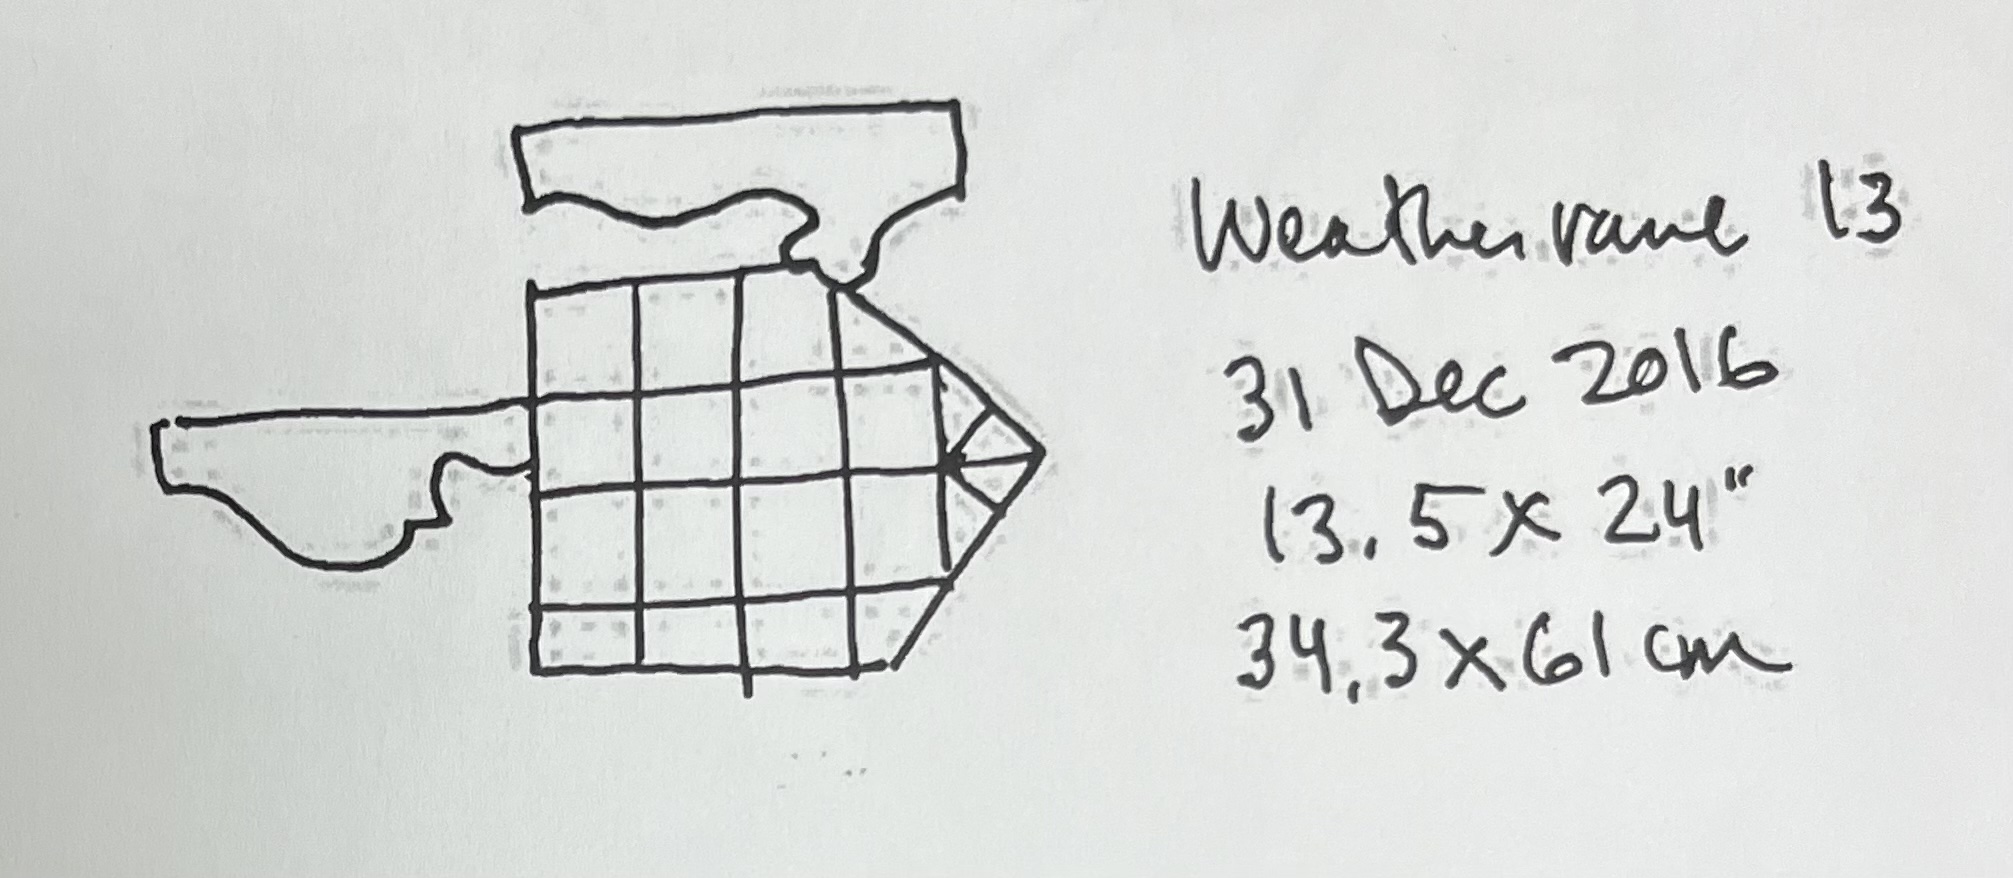 Weathervane 13
31 Dec 2016
13.5 x 24"
34.3 x 61 cm